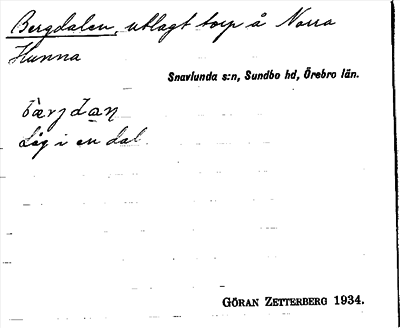 Bergdalen, utlagt torp å Norra
Hunna
Snavlunda s:n, Sundbo hd, Örebro län.
bàrjdan
Låg i en dal.
GÖRAN ZETTERBERG 1934.